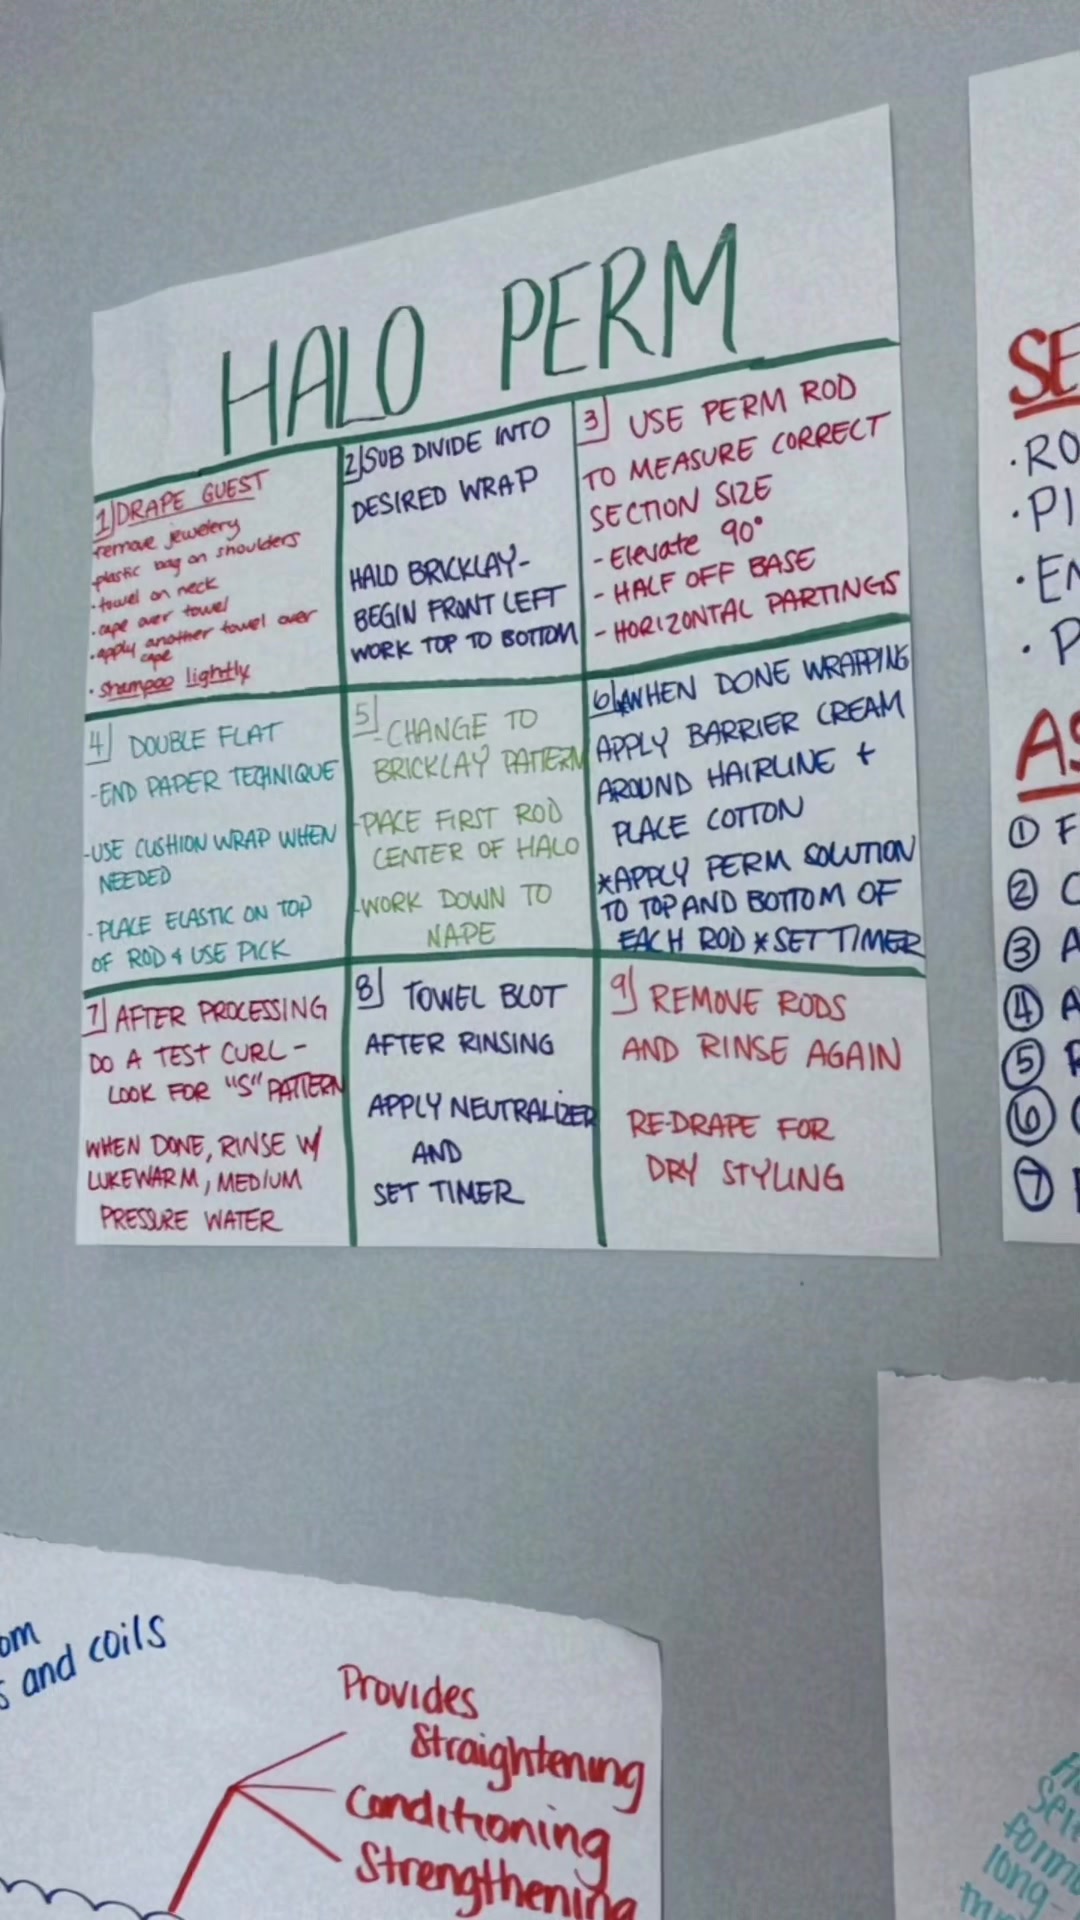 HALO PERM
1 DRAPE GUEST
-remove jewelery
-plastic bag on shoulders
• towel on neck
• cape over towel
• apply another towel over
cape
• shampoo lightly
2 SUB DIVIDE INTO
DESIRED WRAP
HALO BRICKLAY-
BEGIN FRONT LEFT
WORK TOP TO BOTTOM
3 USE PERM ROD
TO MEASURE CORRECT
SECTION SIZE
- Elevate 90°
- HALF OFF BASE
- HORIZONTAL PARTINGS
4 DOUBLE FLAT
-END PAPER TECHNIQUE
-USE CUSHION WRAP WHEN
NEEDED
- PLACE ELASTIC ON TOP
OF ROD & USE PICK
5 -CHANGE TO
BRICKLAY PATTERN
-PLACE FIRST ROD
CENTER OF HALO
-WORK DOWN TO
NAPE
6 WHEN DONE WRAPPING
APPLY BARRIER CREAM
AROUND HAIRLINE +
PLACE COTTON
*APPLY PERM SOLUTION
TO TOP AND BOTTOM OF
EACH ROD * SET TIMER
7 AFTER PROCESSING
DO A TEST CURL -
LOOK FOR "S" PATTERN
WHEN DONE, RINSE W/
LUKEWARM, MEDIUM
PRESSURE WATER
8 TOWEL BLOT
AFTER RINSING
APPLY NEUTRALIZER
AND
SET TIMER
9 REMOVE RODS
AND RINSE AGAIN
RE-DRAPE FOR
DRY STYLING
SE
• RO
• PI
• EN
• P
AS
1 F
2 C
3 A
4 A
5
6
7
om
s and coils
Provides
Straightening
Conditioning
Strengthening
long-